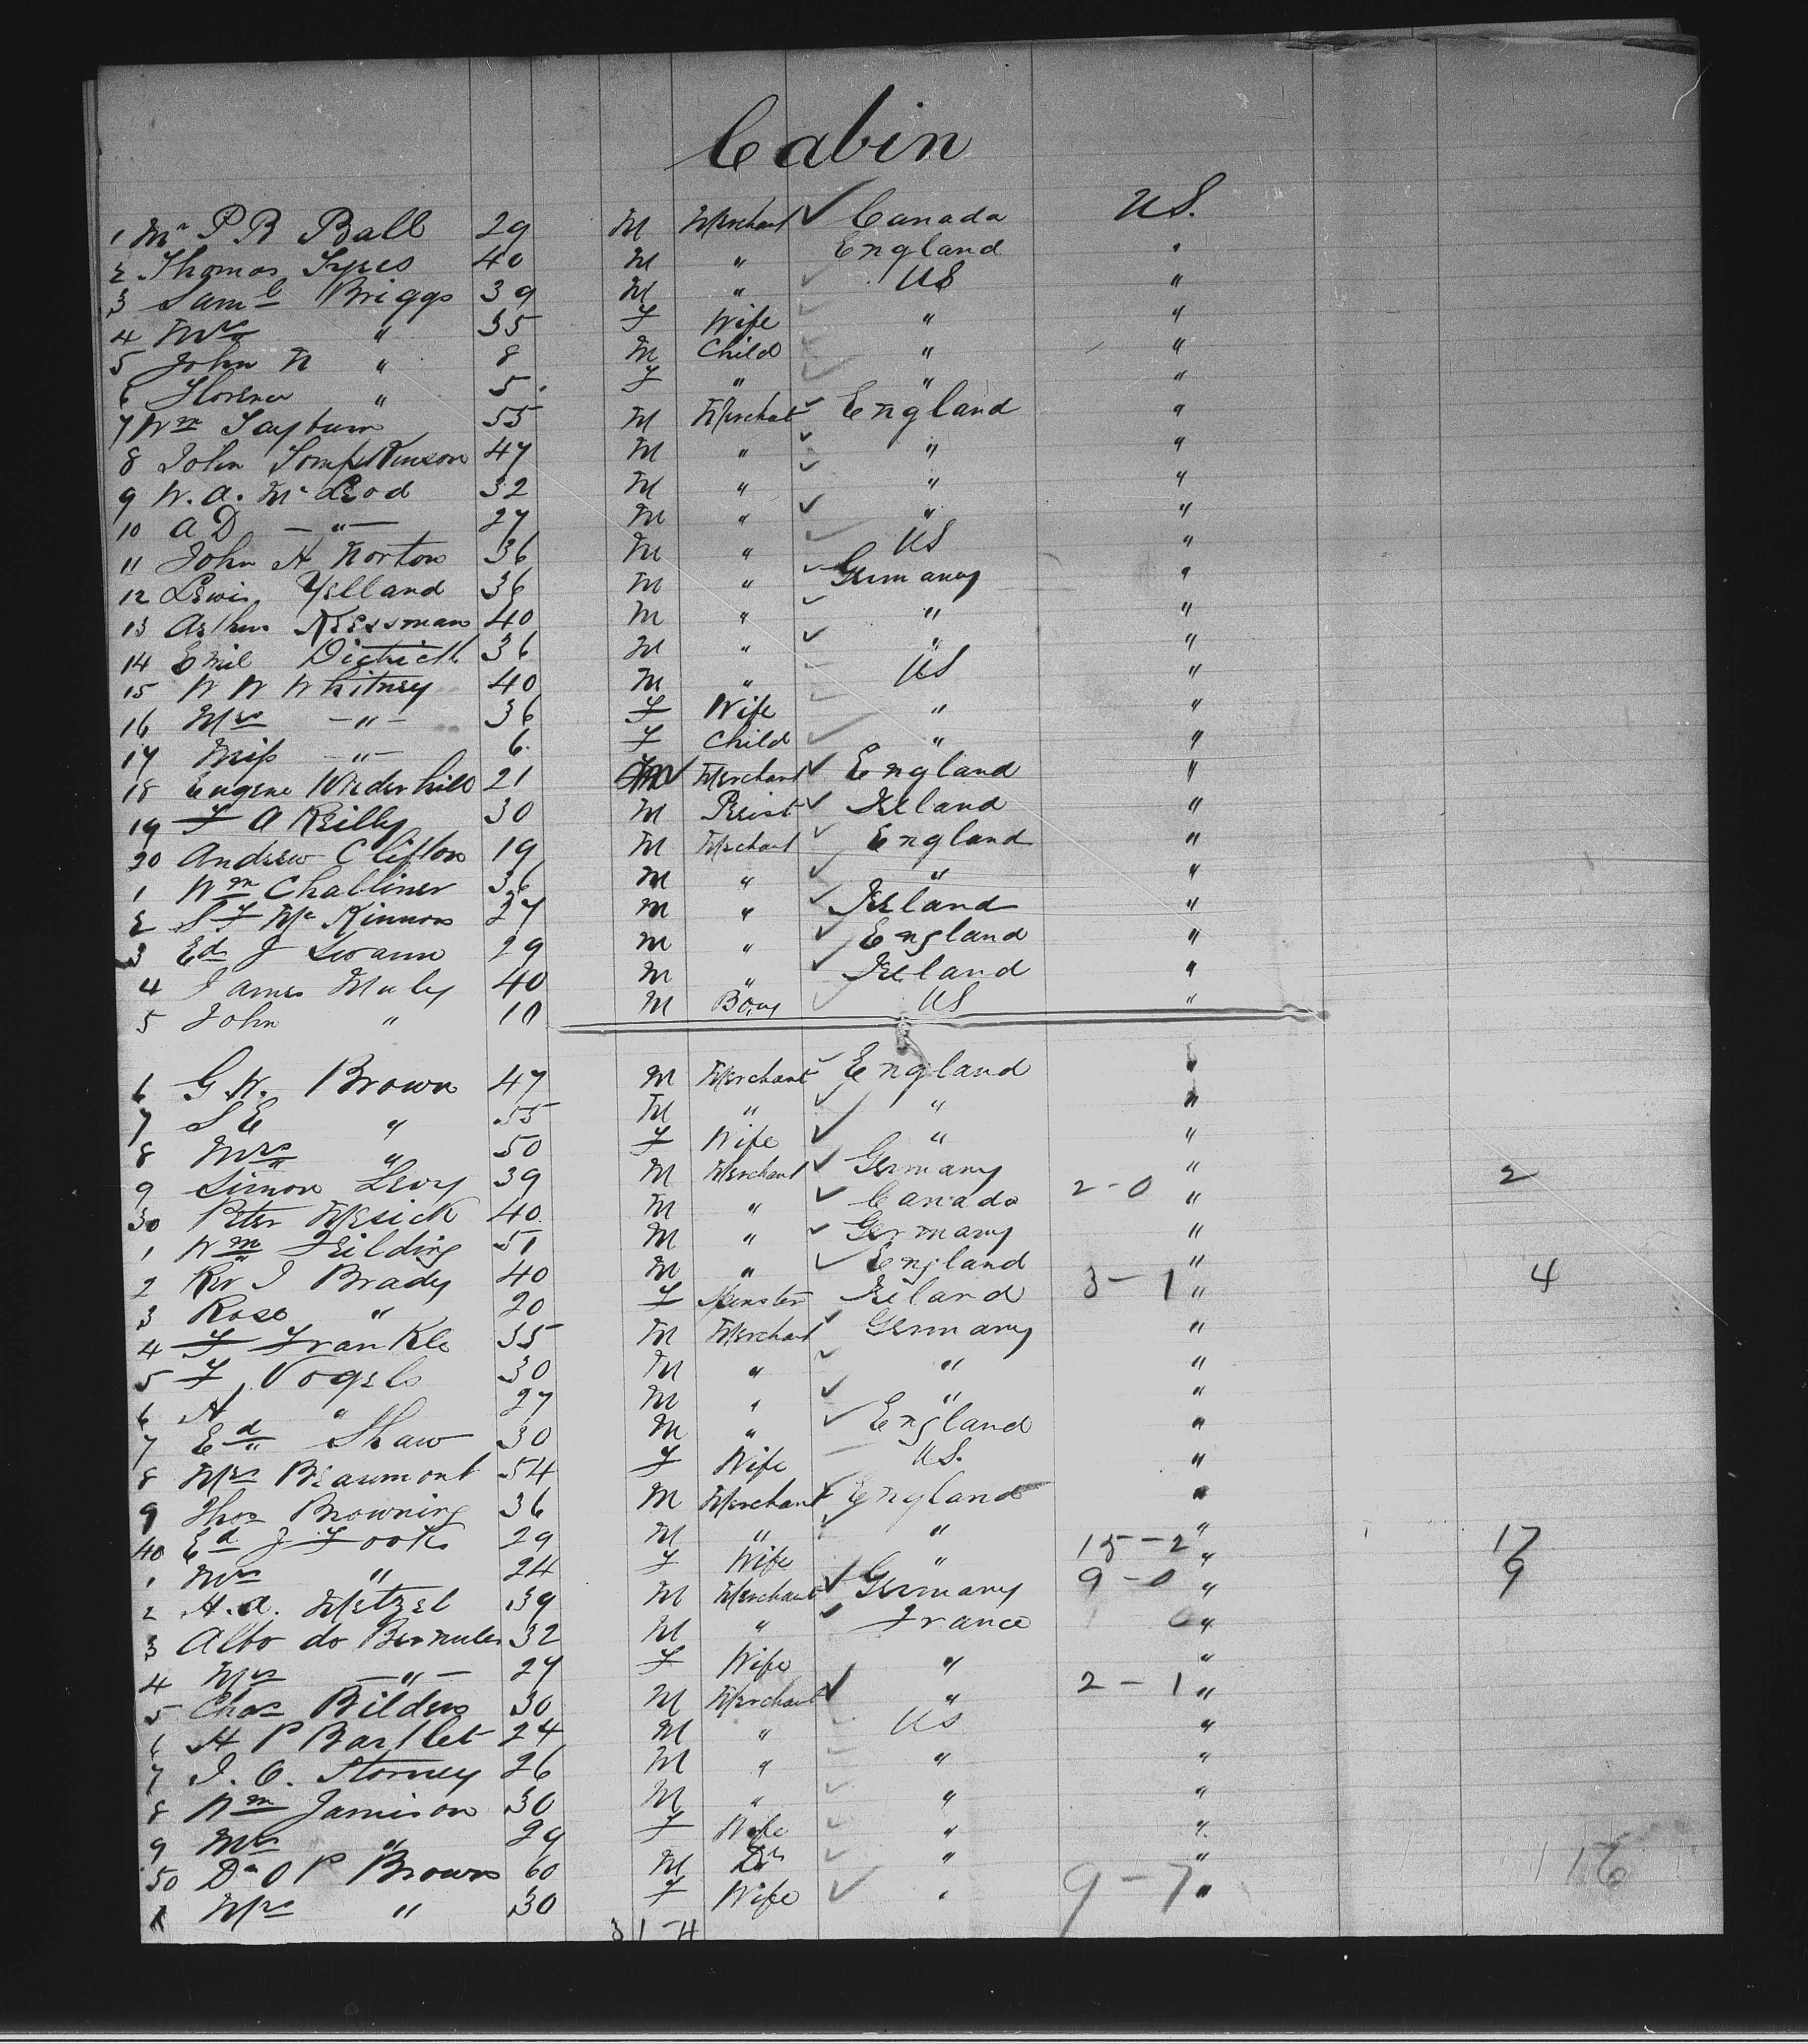 Cabin
1 Mr P B Ball 29 M Merchant ✓ Canada US.
2 Thomas Syres 40 M " England "
3 Saml Briggs 39 M " ✓ US "
4 Mrs " 35 F Wife ✓ " "
5 John N " 8 M Child ✓ " "
6 Florence " 5 F " ✓ " "
7 Wm Tayburn 55 M Merchat ✓ England "
8 John Tompkinson 47 M " ✓ " "
9 W. A. McLeod 32 M " ✓ " "
10 A D —"— 27 M " ✓ " "
11 John H Norton 36 M " ✓ US "
12 Lewis Yelland 36 M " ✓ Germany "
13 Arthur Kessman 40 M " ✓ " "
14 Emil Dietrich 36 M " ✓ " "
15 W W Whitney 40 M " ✓ US "
16 Mrs —"— 36 F Wife ✓ " "
17 Miss —"— 6 F Child ✓ " "
18 Eugene 21 M ✓ Merchant ✓ England "
19 F A Reilly 30 M Preist ✓ Ireland "
20 Andrew Clifton 19 M Merchant ✓ England "
1 Wm Challiner 36 M " ✓ " "
2 S F McKinnon 27 M " ✓ Ireland "
3 Ed J Swann 29 M " ✓ England "
4 James Maley 40 M " ✓ Ireland "
5 John " 10 M Boy ✓ US "
6 G W. Brown 47 M Merchant ✓ England "
7 S E " 55 M " ✓ " "
8 Mrs " 50 F Wife ✓ " "
9 Simon Levy 39 M Merchant ✓ Germany " 2
30 Peter Mesick 40 M " ✓ Canada 2-0 "
1 Wm Feilding 51 M " ✓ Germany "
2 Rev J Brady 40 M " ✓ England "
3 Rose " 20 F Ireland 3-1 " 4
4 F Frankle 35 M Merchant ✓ Germany "
5 F Vogels 30 M " ✓ " "
6 A " 27 M " ✓ " "
7 Ed Shaw 30 M " ✓ England "
8 Mrs Beaumont 54 F Wife US. "
9 Thos Browning 36 M Merchant ✓ England "
40 Ed J Fooks 29 M " ✓ " "
1 Mrs " 24 F Wife " 15-2 " 17
2 A. A. Metzel 39 M Merchant ✓ Germany 9-0 " 9
3 Albo do 32 M " ✓ France "
4 Mrs —"— 27 F Wife " "
5 Chas Bilders 30 M Merchant ✓ " 2-1 "
6 H P Bartlet 24 M " ✓ US "
7 J. O. Storney 26 M " ✓ " "
8 Wm Jamison 30 M " ✓ " "
9 Mrs " 29 F Wife ✓ " "
50 Dr O P Brown 60 M Dr ✓ " " 16
1 Mrs " 30 F Wife ✓ " 9-7 "
31-4